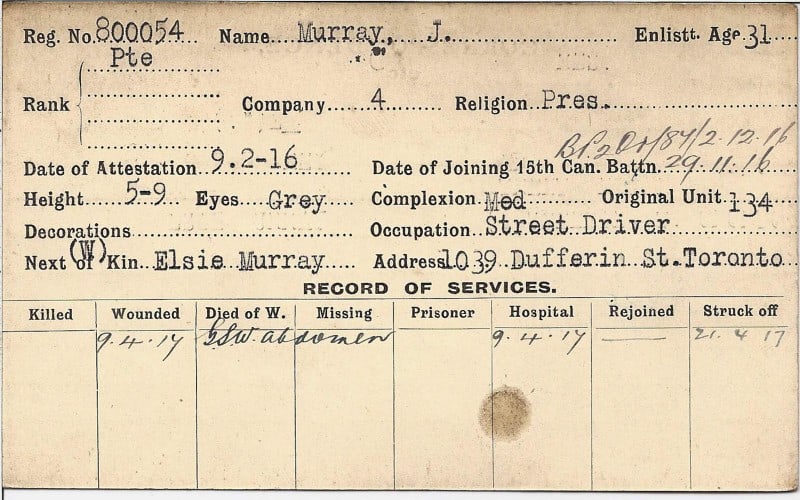 Reg. No. 800054 Name Murray, J. Enlistt. Age 31
Pte
Rank Company 4 Religion Pres.
B.P.2 Do/87/2.12.16
Date of Attestation 9.2-16 Date of Joining 15th Can. Battn. 29.11.16
Height 5-9 Eyes Grey Complexion Med Original Unit 134
Decorations Occupation Street Driver
(W)
Next of Kin. Elsie Murray Address 1039 Dufferin St. Toronto
RECORD OF SERVICES.
Killed Wounded Died of W. Missing Prisoner Hospital Rejoined Struck off
9.4.17 GSW abdomen 9.4.17 — 21.4.17